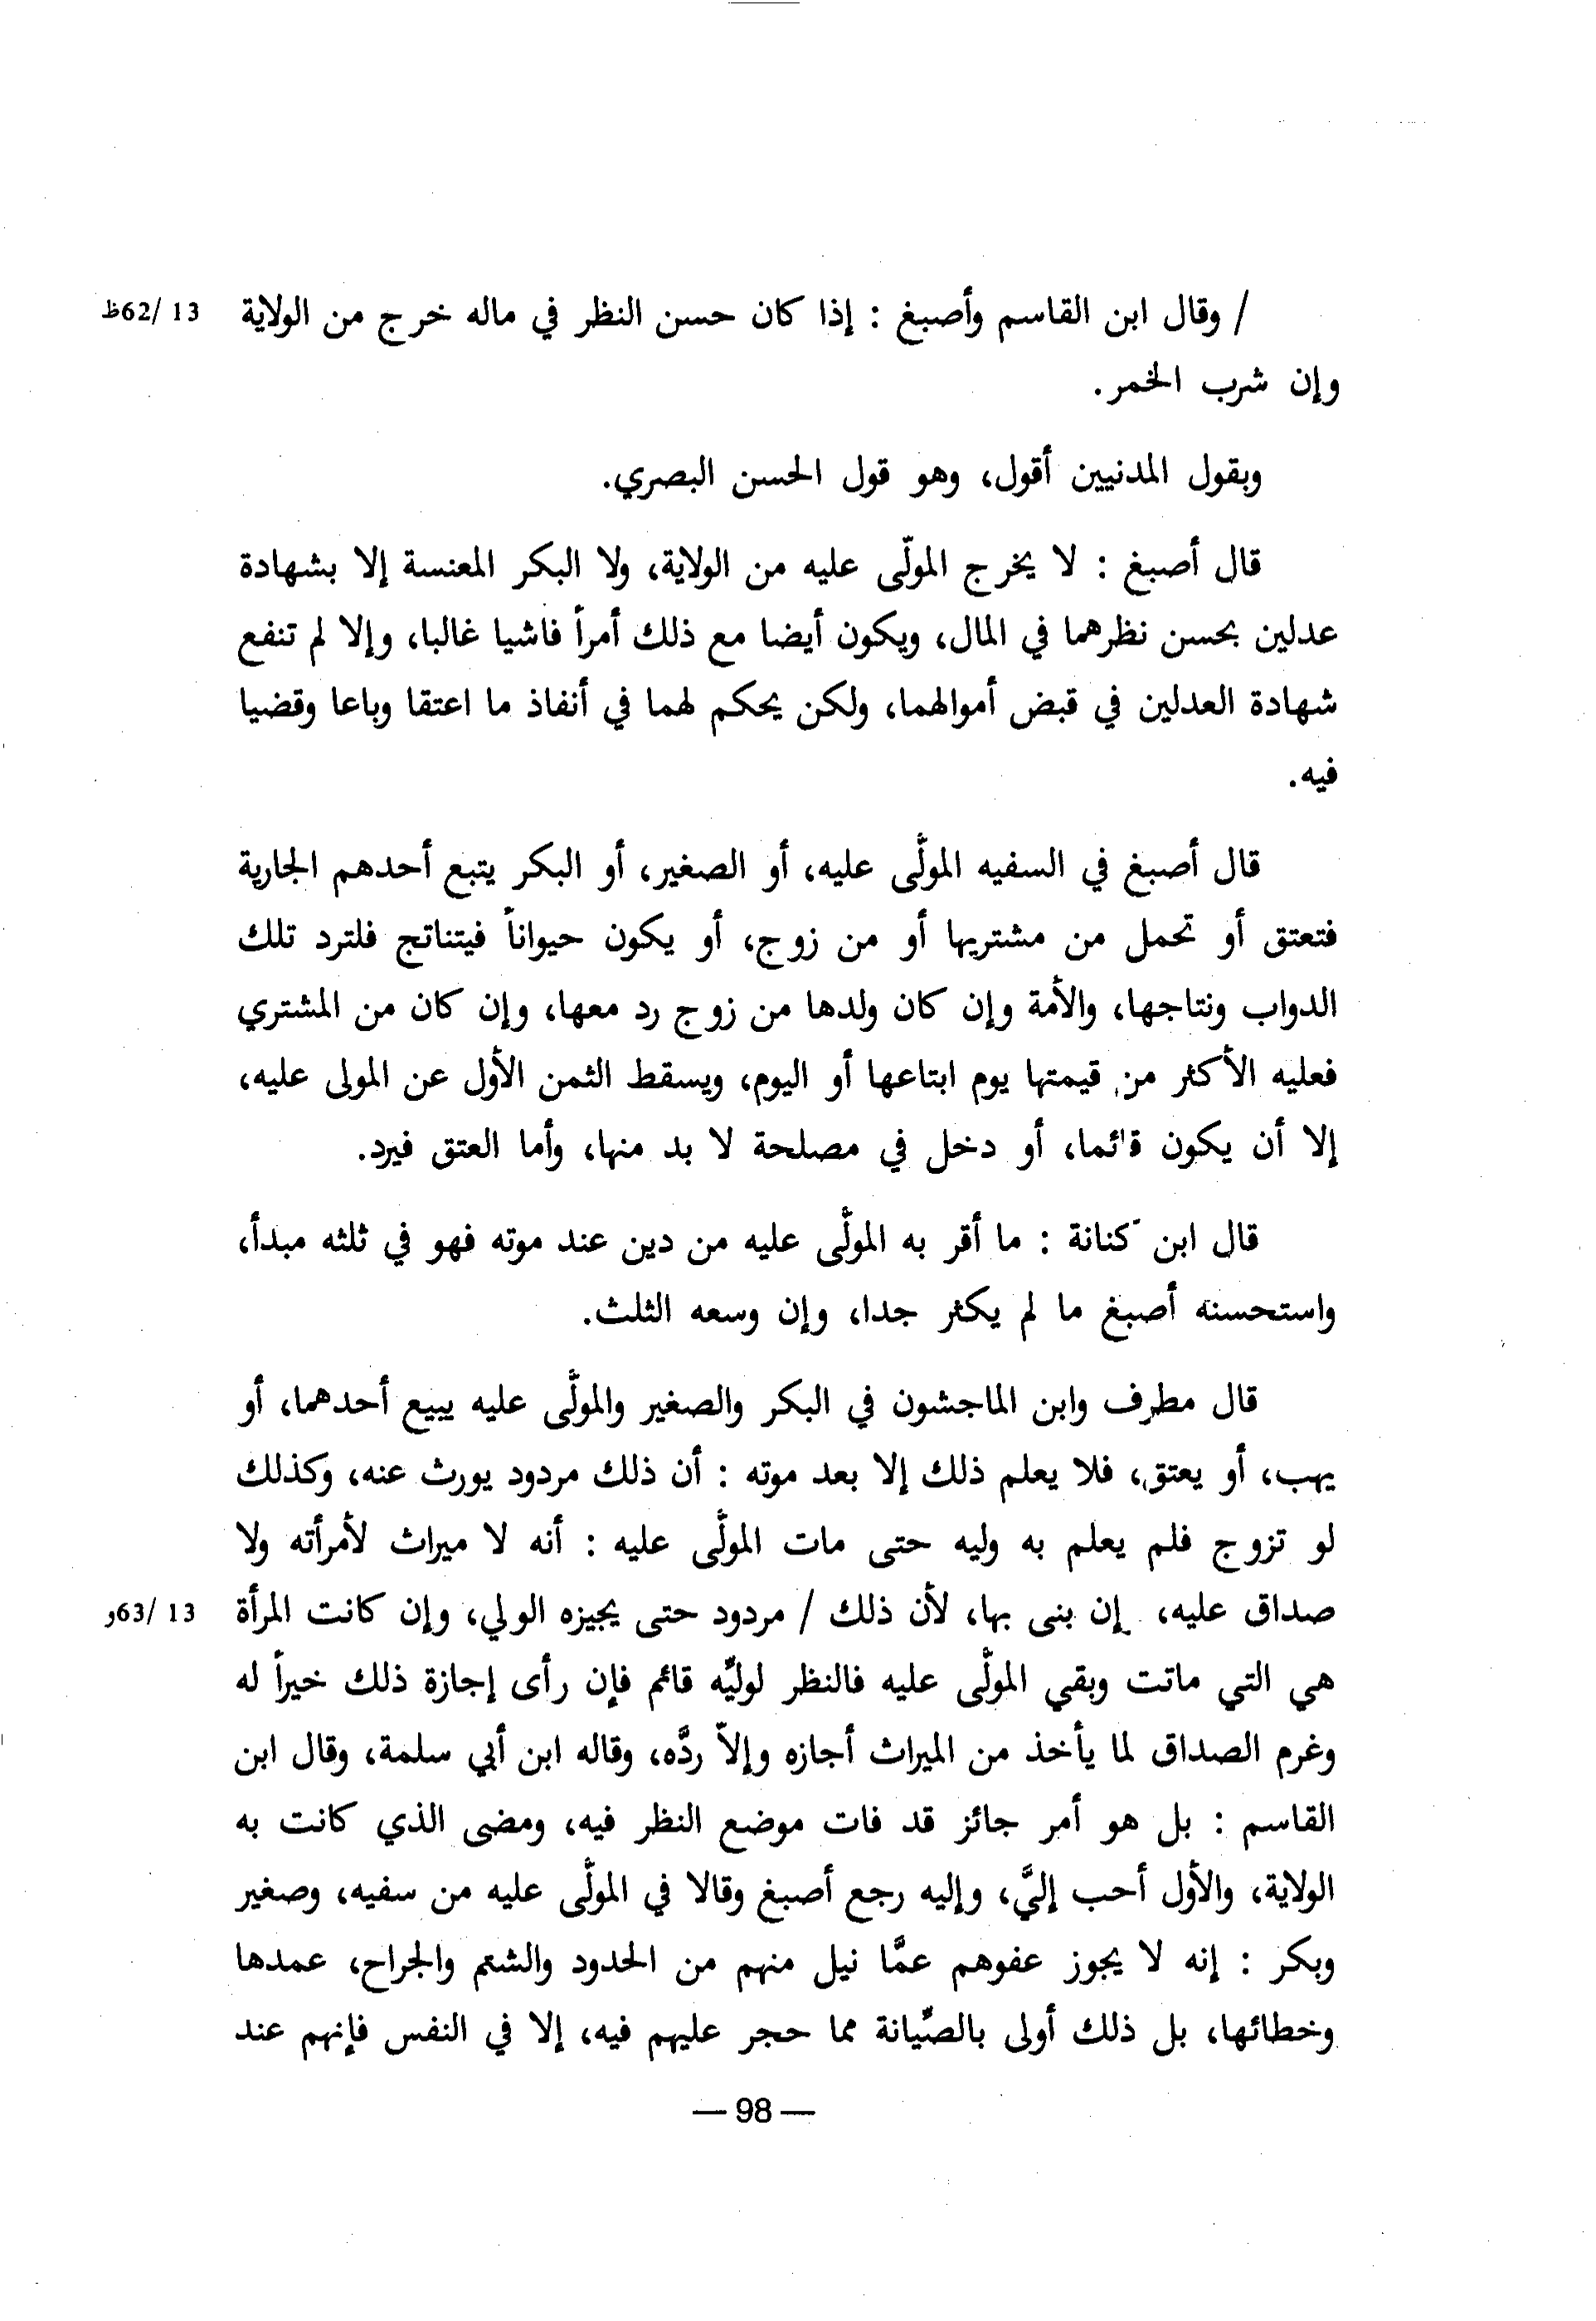 / وقال ابن القاسم وأصبغ : إذا كان حسن النظر في ماله خرج من الولاية 13 /62ظ
وإن شرب الخمر.
وبقول المدنيين أقول، وهو قول الحسن البصري.
قال أصبغ : لا يخرج المولّى عليه من الولاية، ولا البكر المعنسة إلا بشهادة
عدلين بحسن نظرهما في المال، ويكون أيضا مع ذلك أمراً فاشيا غالبا، وإلا لم تنفع
شهادة العدلين في قبض أموالهما، ولكن يحكم لهما في أنفاذ ما اعتقا وباعا وقضيا
فيه.
قال أصبغ في السفيه المولَّى عليه، أو الصغير، أو البكر يتبع أحدهم الجارية
فتعتق أو تحمل من مشتريها أو من زوج، أو يكون حيواناً فيتناتج فلترد تلك
الدواب ونتاجها، والأمة وإن كان ولدها من زوج رد معها، وإن كان من المشتري
فعليه الأكثر من قيمتها يوم ابتاعها أو اليوم، ويسقط الثمن الأول عن المولى عليه،
إلا أن يكون قائما، أو دخل في مصلحة لا بد منها، وأما العتق فيرد.
قال ابن كنانة : ما أقر به المولَّى عليه من دين عند موته فهو في ثلثه مبدأ،
واستحسنه أصبغ ما لم يكثر جدا، وإن وسعه الثلث.
قال مطرف وابن الماجشون في البكر والصغير والمولَّى عليه يبيع أحدهما، أو
يهب، أو يعتق، فلا يعلم ذلك إلا بعد موته : أن ذلك مردود يورث عنه، وكذلك
لو تزوج فلم يعلم به وليه حتى مات المولَّى عليه : أنه لا ميراث لأمرأته ولا
صداق عليه، إن بنى بها، لأن ذلك / مردود حتى يجيزه الولي، وإن كانت المرأة 13 /63و
هي التي ماتت وبقي المولَّى عليه فالنظر لوليِّه قائم فإن رأى إجازة ذلك خيراً له
وغرم الصداق لما يأخذ من الميراث أجازه وإلاّ ردَّه، وقاله ابن أبي سلمة، وقال ابن
القاسم : بل هو أمر جائز قد فات موضع النظر فيه، ومضى الذي كانت به
الولاية، والأول أحب إليَّ، وإليه رجع أصبغ وقالا في المولَّى عليه من سفيه، وصغير
وبكر : إنه لا يجوز عفوهم عمَّا نيل منهم من الحدود والشتم والجراح، عمدها
وخطائها، بل ذلك أولى بالصِّيانة مما حجر عليهم فيه، إلا في النفس فإنهم عند
— 98 —